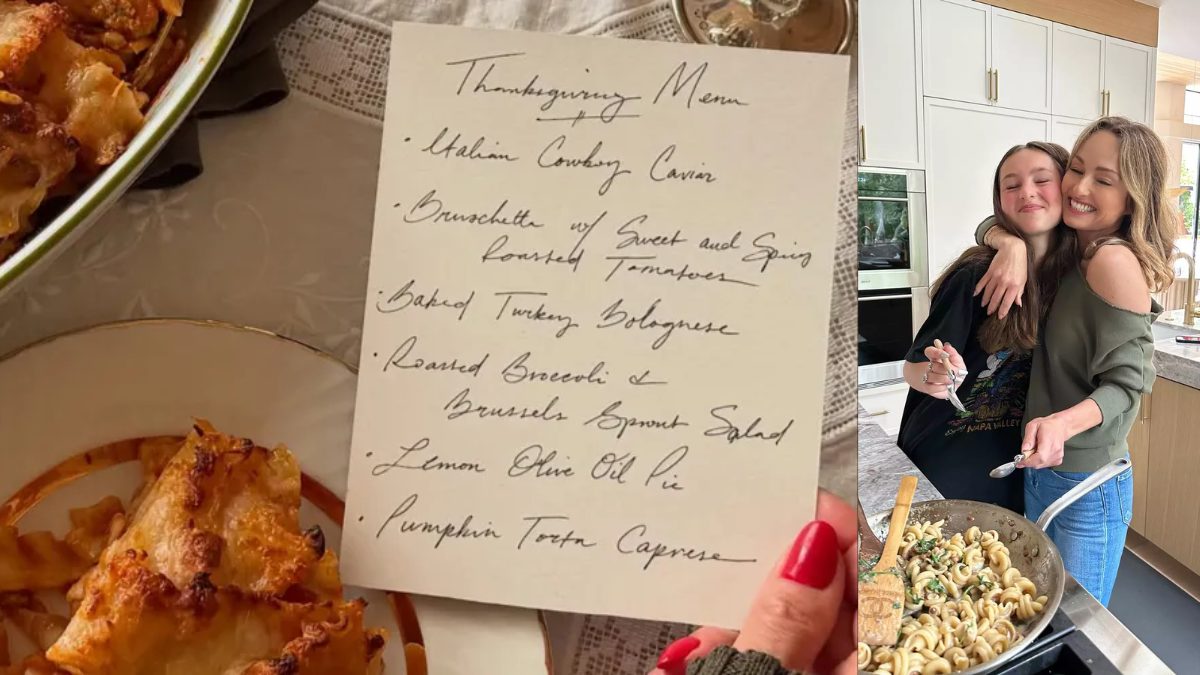 Thanksgiving Menu
· Italian Cowboy Caviar
· Bruschetta w/ Sweet and Spicy
Roasted Tomatoes
· Baked Turkey Bolognese
· Roasted Broccoli &
Brussels Sprout Salad
· Lemon Olive Oil Pie
· Pumpkin Torta Caprese
NAPA VALLEY